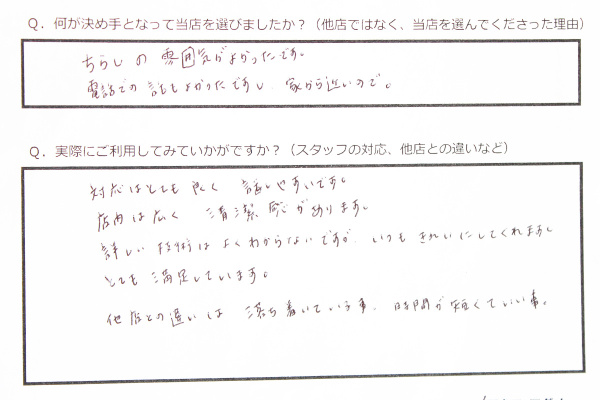 Q. 何が決め手となって当店を選びましたか？（他店ではなく、当店を選んでくださった理由）
ちらしの 雰囲気がよかったです。
電話での 話もよかったですし 家から近いので。
Q. 実際にご利用してみていかがですか？（スタッフの対応、他店との違いなど）
対応はとても 良く 話しやすいです。
店内は広く 清潔感があります。
詳しい 技術は よくわからないですが、いつも きれいにしてくれます。
とても 満足しています。
他店との違いは 落ち着いている事、時間が短くていい事。